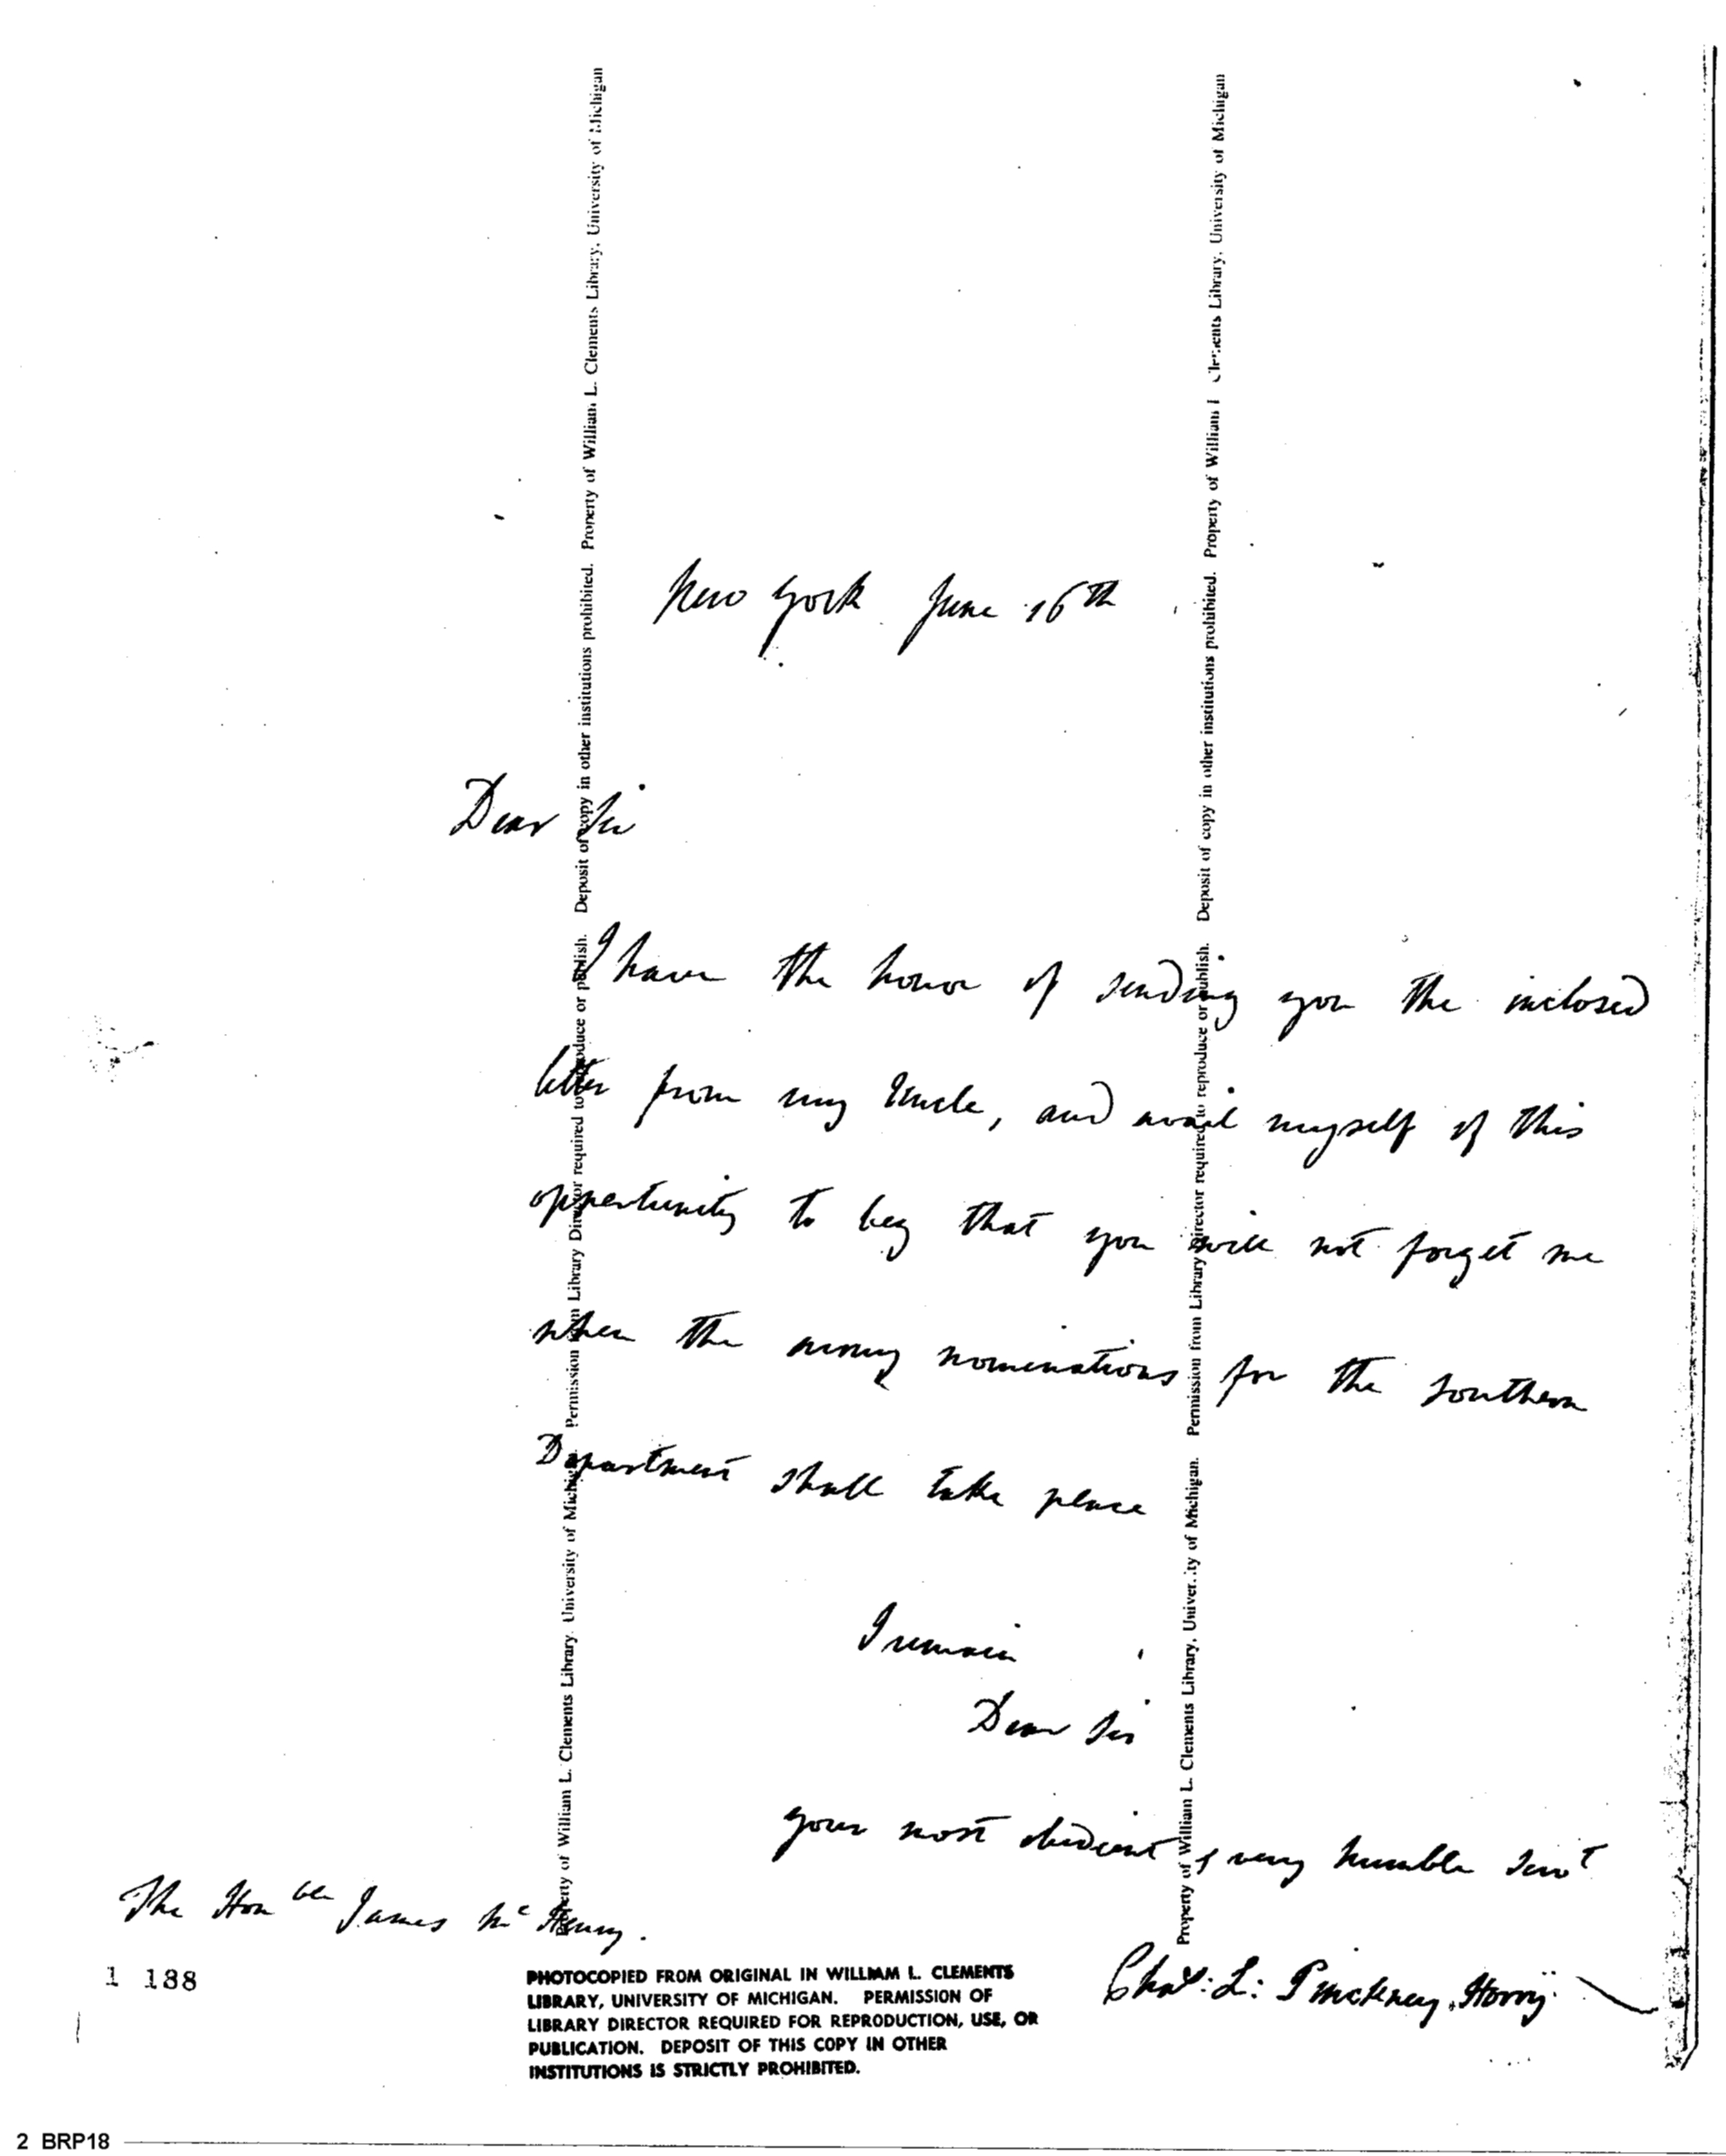 New York June 16th
Dear Sir
I have the honor of sending you the inclosed
letter from my Uncle, and avail myself of this
opportunity to beg that you will not forget me
when the army nominations for the southern
Department shall take place
I remain
Dear Sir
your most obedient & very humble servt
The Honble James McHenry.
Chas: L: Pinckney Horry
1 188
PHOTOCOPIED FROM ORIGINAL IN WILLIAM L. CLEMENTS
LIBRARY, UNIVERSITY OF MICHIGAN. PERMISSION OF
LIBRARY DIRECTOR REQUIRED FOR REPRODUCTION, USE, OR
PUBLICATION. DEPOSIT OF THIS COPY IN OTHER
INSTITUTIONS IS STRICTLY PROHIBITED.
Property of William L. Clements Library, University of Michigan. Permission from Library Director required to reproduce or publish. Deposit of copy in other institutions prohibited. Property of William L. Clements Library, University of Michigan
Property of William L. Clements Library, University of Michigan. Permission from Library Director required to reproduce or publish. Deposit of copy in other institutions prohibited. Property of William L Clements Library, University of Michigan
2 BRP18